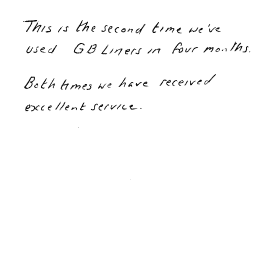 This is the second time we've
used GB Liners in four months.
Both times we have received
excellent service.